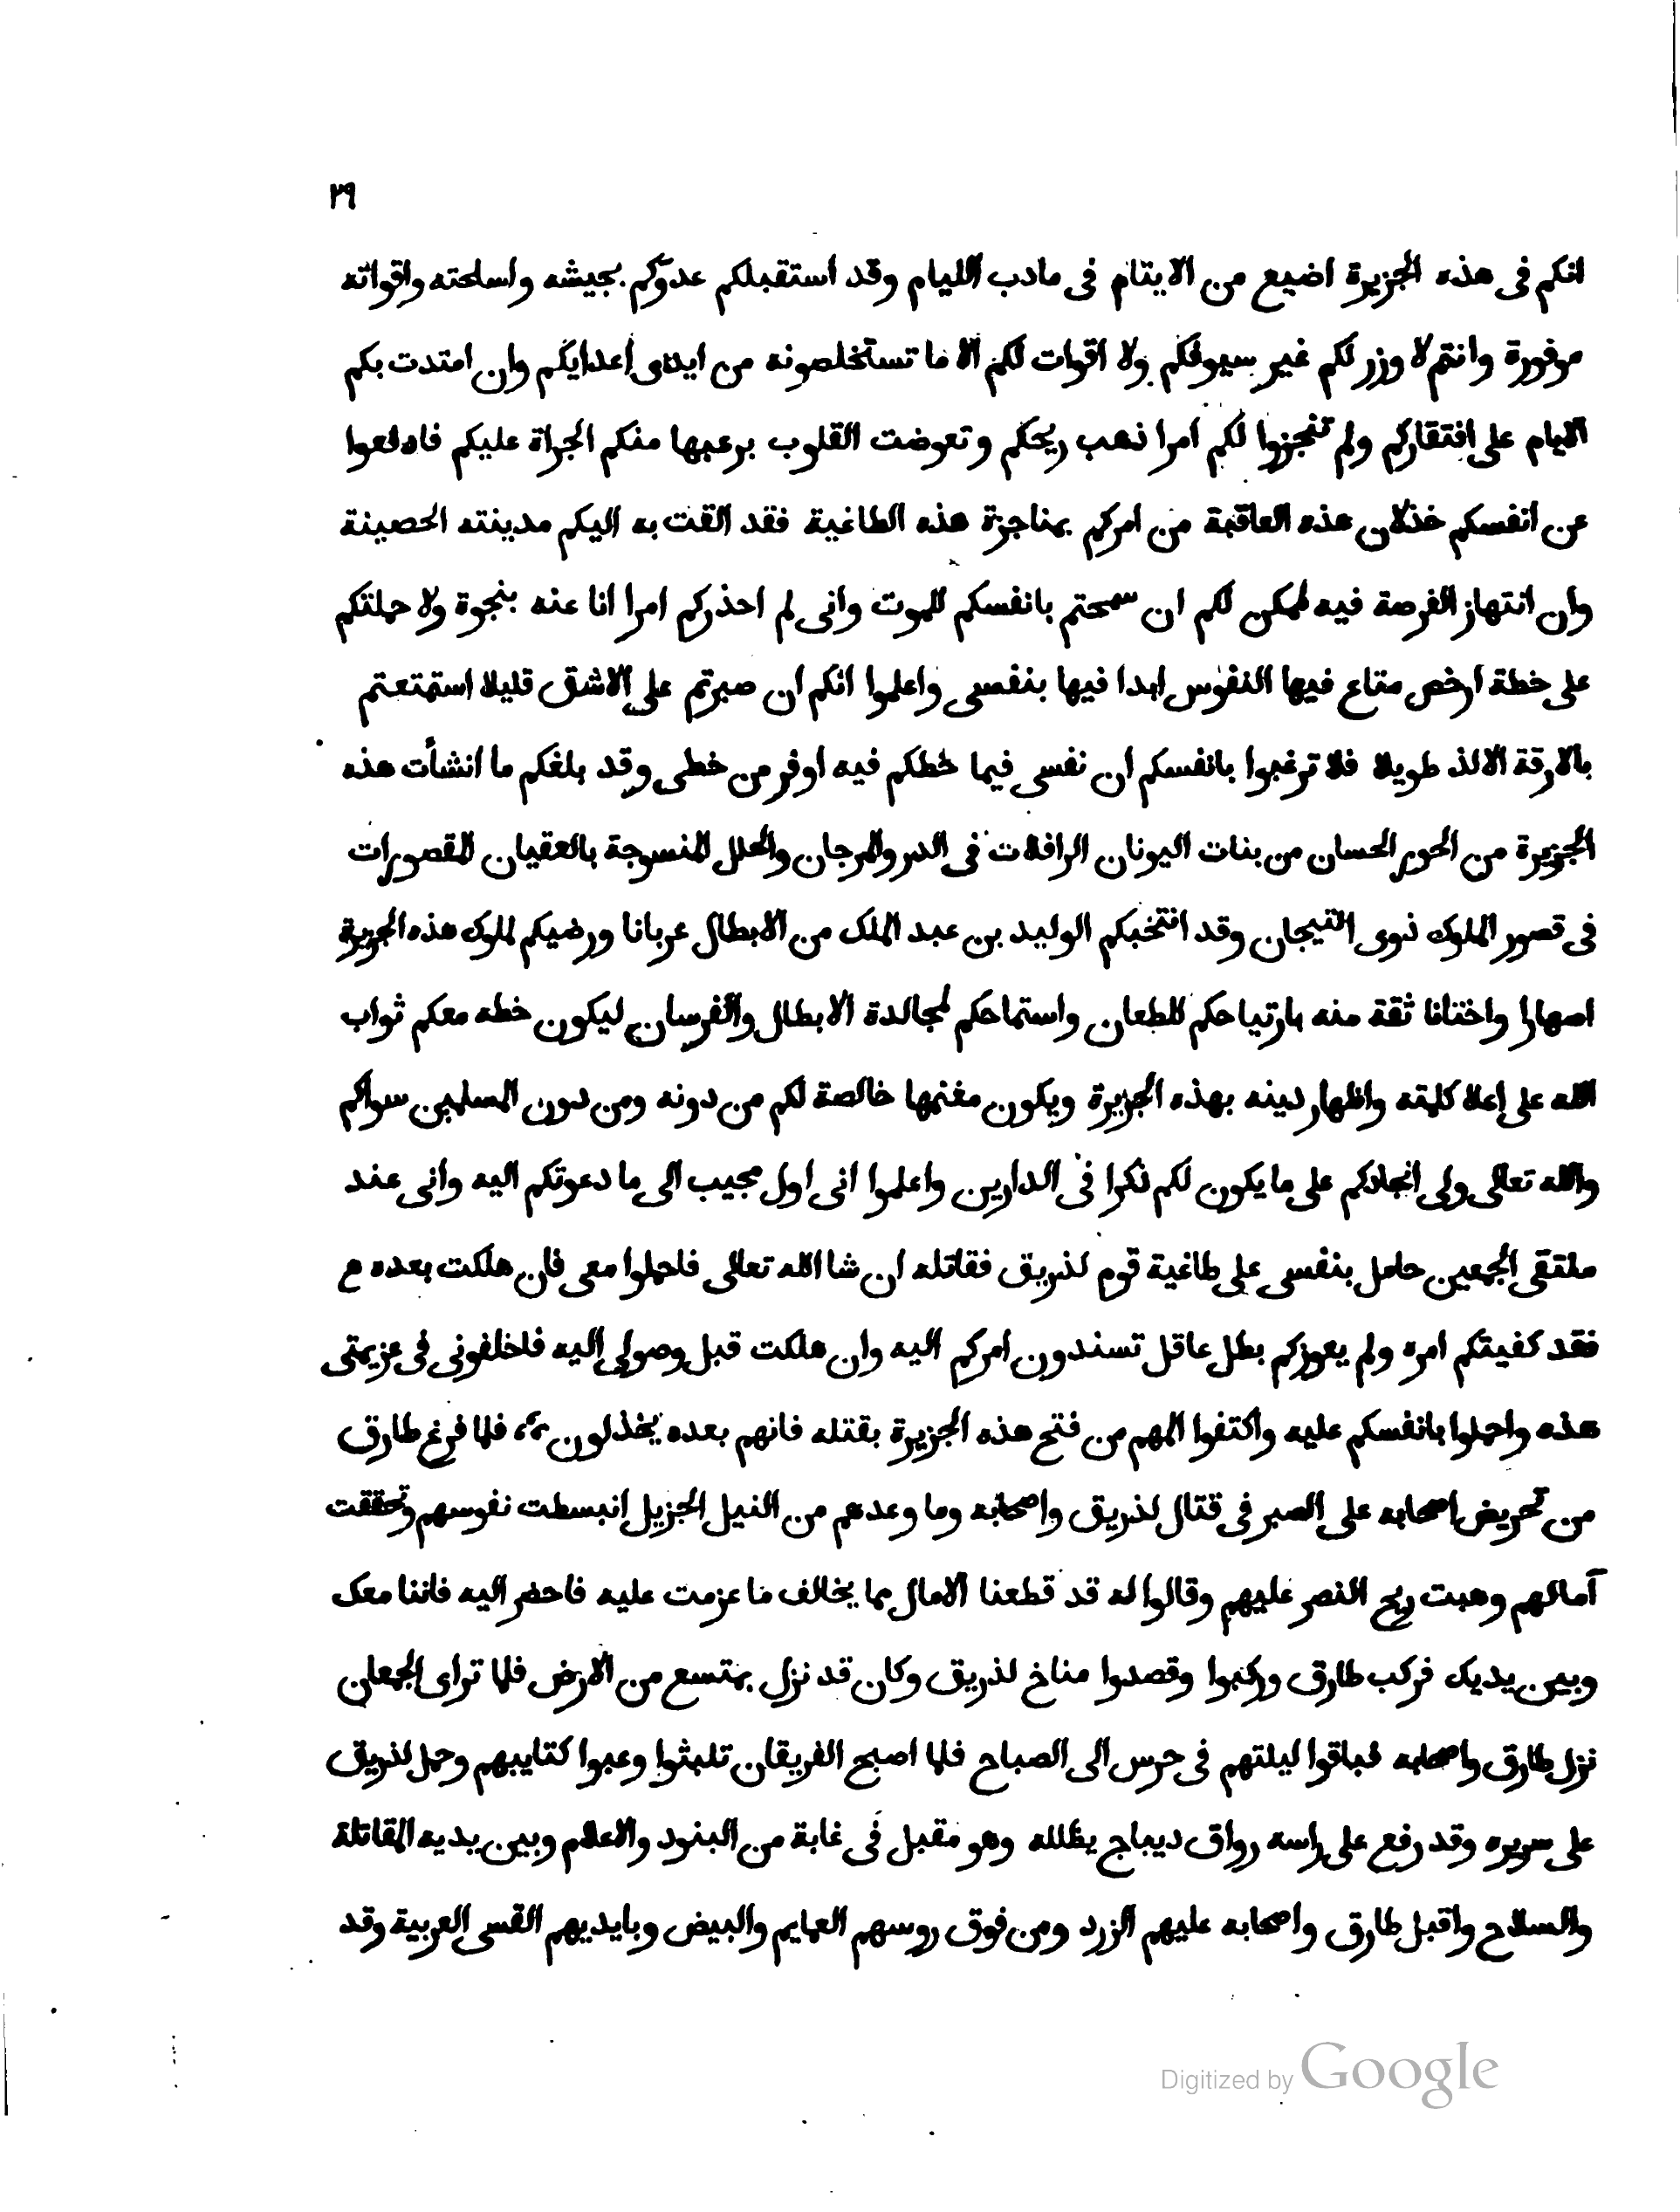 ٢٩
انكم فى هذه الجزيرة اضيع من الايتام فى مادب الليام وقد استقبلكم عدوّكم بجيشه واسلحته واقواته
موفورة وانتم لا وزر لكم غير سيوفكم ولا اقوات لكم الا ما تستخلصونه من ايدى اعدايكم وان امتدت بكم
الايام على افتقاركم ولم تنجزوا لكم امرا ذهب ريحكم وتعوضت القلوب برعبها منكم الجراة عليكم فادفعوا
عن انفسكم خذلان هذه العاقبة من امركم بمناجزة هذه الطاغية فقد القت به اليكم مدينته الحصينة
وان انتهاز الفرصة فيه لممكن لكم ان سمحتم بانفسكم للموت وانى لم احذركم امرا انا عنه بنجوة ولا حملتكم
على خطة ارخص متاع فيها النفوس ابدا فيها بنفسى واعلموا انكم ان صبرتم على الاشق قليلا استمتعتم
بالارقة الالذ طويلا فلا ترغبوا بانفسكم ان نفسى فيما خطكم فيه اوفر من خطى وقد بلغكم ما انشأت هذه
الجزيرة من الحور الحسان من بنات اليونان الرافلات فى الدر والمرجان والحلل المنسوجة بالعقيان المقصورات
فى قصور الملوك ذوى التيجان وقد انتخبكم الوليد بن عبد الملك من الابطال عربانا ورضيكم لملوك هذه الجزيرة
اصهارا واختانا ثقة منه بارتياحكم للطعان واستماحكم لمجالدة الابطال والفرسان ليكون خطه معكم ثواب
الله على اعلا كلمته واظهار دينه بهذه الجزيرة ويكون مغنمها خالصة لكم من دونه ومن دون المسلمين سواكم
والله تعالى ولى انجادكم على ما يكون لكم ذكرا فى الدارين واعلموا انى اول مجيب الى ما دعوتكم اليه وانى عند
ملتقى الجمعين حامل بنفسى على طاغية قوم لذريق فقاتله ان شا الله تعالى فاحملوا معى فان هلكت بعده
فقد كفيتكم امره ولم يعوزكم بطل عاقل تسندون امركم اليه وان هلكت قبل وصولى اليه فاخلفونى فى عزيمتى
هذه واحملوا بانفسكم عليه واكتفوا المهم من فتح هذه الجزيرة بقتله فانهم بعده يخذلون فلما فرغ طارق
من تحريض اصحابه على الصبر فى قتال لذريق واصحابه وما وعدهم من النيل الجزيل انبسطت نفوسهم وتحققت
آمالهم وهبت ريح النصر عليهم وقالوا له قد قطعنا الامال مما يخالف ما عزمت عليه فاحضر اليه فاننا معك
وبين يديك فركب طارق وركبوا وقصدوا مناخ لذريق وكان قد نزل بمتسع من الارض فلما تراى الجمعان
نزل طارق واصحابه فباقوا ليلتهم فى حرس الى الصباح فلما اصبح الفريقان تلبثوا وعبوا كتايبهم وحمل لذريق
على سريره وقد رفع على راسه رواق ديباج يظلله وهو مقبل فى غابة من البنود والاعلام وبين يديه المقاتلة
والسلاح واقبل طارق واصحابه عليهم الزرد ومن فوق روسهم العمايم والبيض وبايديهم القسى العربية وقد
Digitized by Google